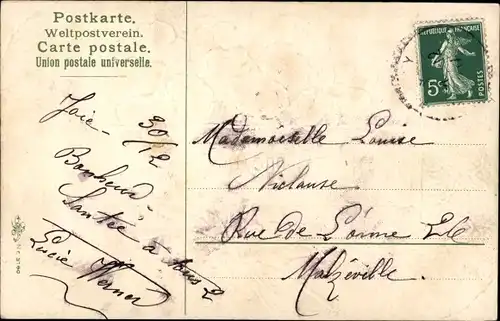 Postkarte.
Weltpostverein.
Carte postale.
Union postale universelle.
REPUBLIQUE FRANÇAISE
5c
POSTES
30/12
Joie -
Bonheur -
Santée à tous
Lucie Werner
Mademoiselle Louise
Niclause
Rue de Lorme
Malzéville.